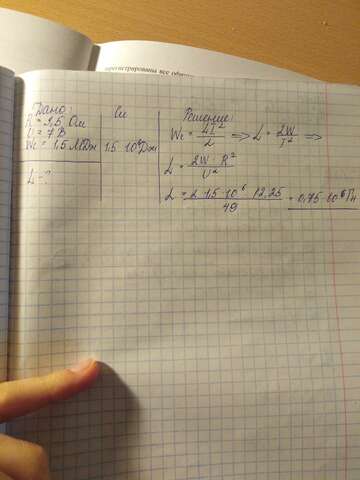 зарегистрированы все
Дано:
R = 3,5 Ом
U = 7 В
W₁ = 1,5 МДж
L = ?
Си
1,5 · 10⁶ Дж
Решение:
W₁ = LI²/2 => L = 2W/I² =>
L = 2W · R²/U²
L = 2 · 1,5 · 10⁶ · 12,25/49 = 0,75 · 10⁶ Гн